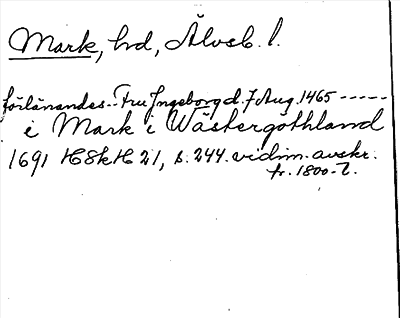 Mark, hd, Älvsb. l.
förlänandes. Fru Ingeborg d. 7 Aug. 1465 -----
i Mark i Wästergöthland
1691 HSkH 21, s. 244. vidim. avskr.
fr. 1800-t.